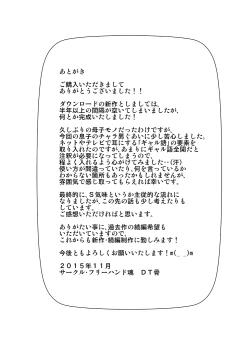 あとがき
ご購入いただきまして
ありがとうございました！！
ダウンロードの新作としましては、
半年以上の間隔が空いてしまいましたが、
何とか完成いたしました！
久しぶりの母子モノだったわけですが、
今回の息子のチャラ男ぐあいに少し苦心しました。
ネットやテレビで耳にする｢ギャル語｣の要素を
取り入れたのですが、あまりにギャル語全開だと
注釈が必要になってしまうので、
程よく入れるよう心がけてみました‥（汗）
使い方が間違っていたり、何を言っているか
わからない箇所もあったかもしれませんが、
雰囲気で感じ取ってもらえれば幸いです。
最終的に、Ｓ気味というか主従的な流れに
なりましたが、この先の話も少し考えたりも
しています。
ご感想いただければと思います。
ありがたい事に、過去作の続編希望も
いただいていますので、
これからも新作･続編制作に勤しみます！
今後ともよろしくお願いいたします！m(_ _)m
２０１５年１１月
サークル･フリーハンド魂　ＤＴ骨